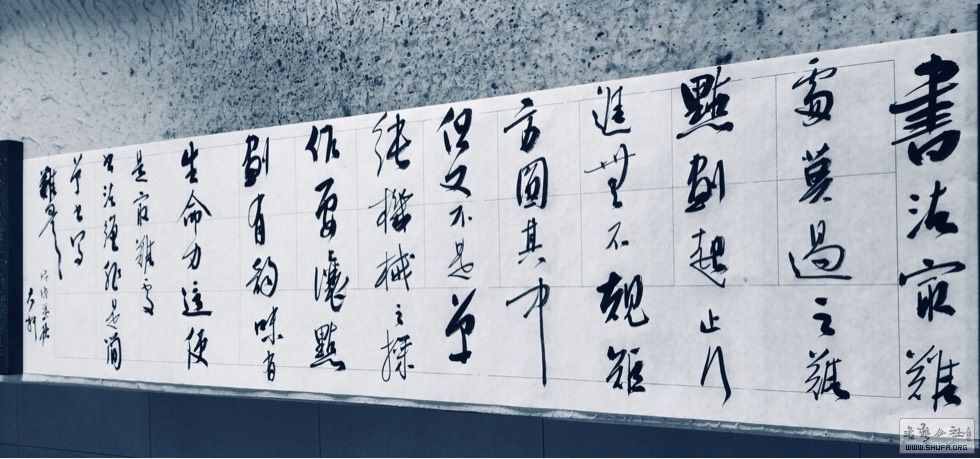 書法最難
處莫過之難
點劃起止行
進無不規矩
方圓其中
但又不是單
純機械之操
作要讓點
劃有韵味有
生命力這便
是最難處
書法絕非是簡
單書寫
難
書藝公社
WWW.SHUFA.ORG